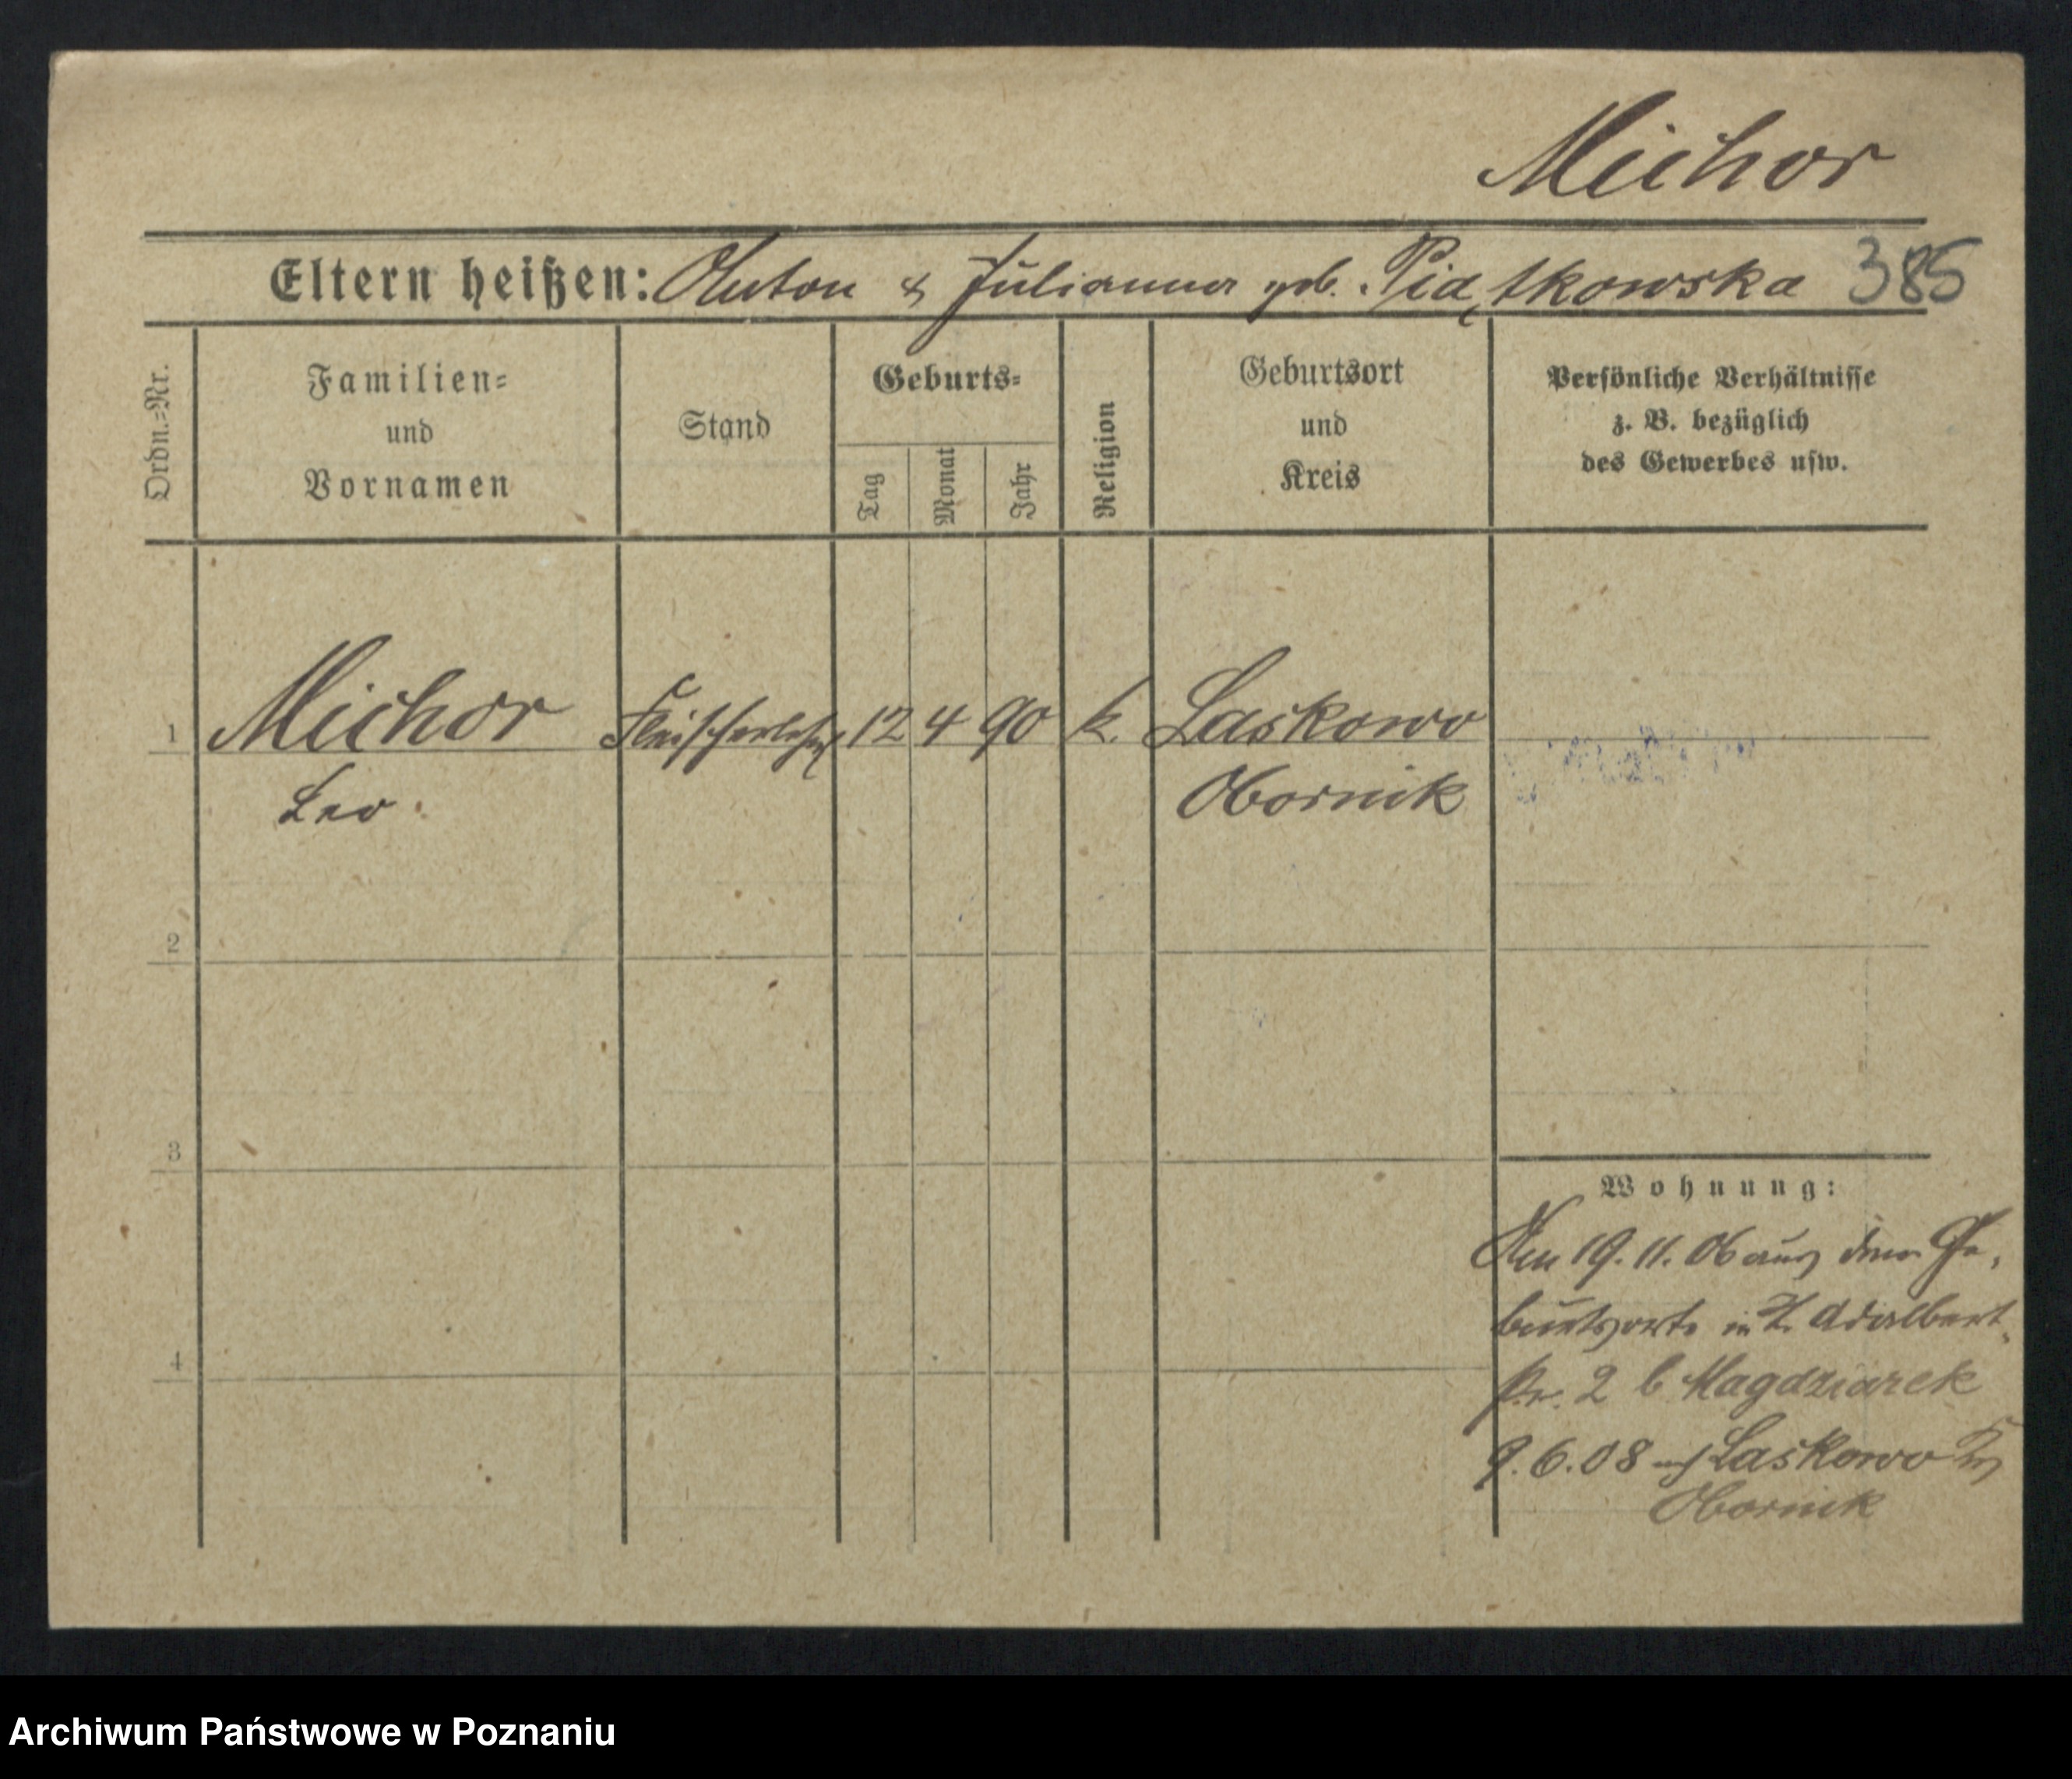 Michor
Eltern heißen: Anton & Julianna geb. Piątkowska 385
Ordn.=Nr.
Familien=
und
Vornamen
Stand
Geburts=
Tag
Monat
Jahr
Religion
Geburtsort
und
Kreis
Persönliche Verhältnisse
z. B. bezüglich
des Gewerbes usw.
1 Michor Fleischerlehrl 12 4 90 k. Laskowo
Leo Obornik
2
3
4
Wohnung:
Am 19. 11. 06 aus dem Ge-
burtsorte in Adalbert-
str. 2 b Magdziarek
9.6.08 Laskowo Kr
Obornik
Archiwum Państwowe w Poznaniu